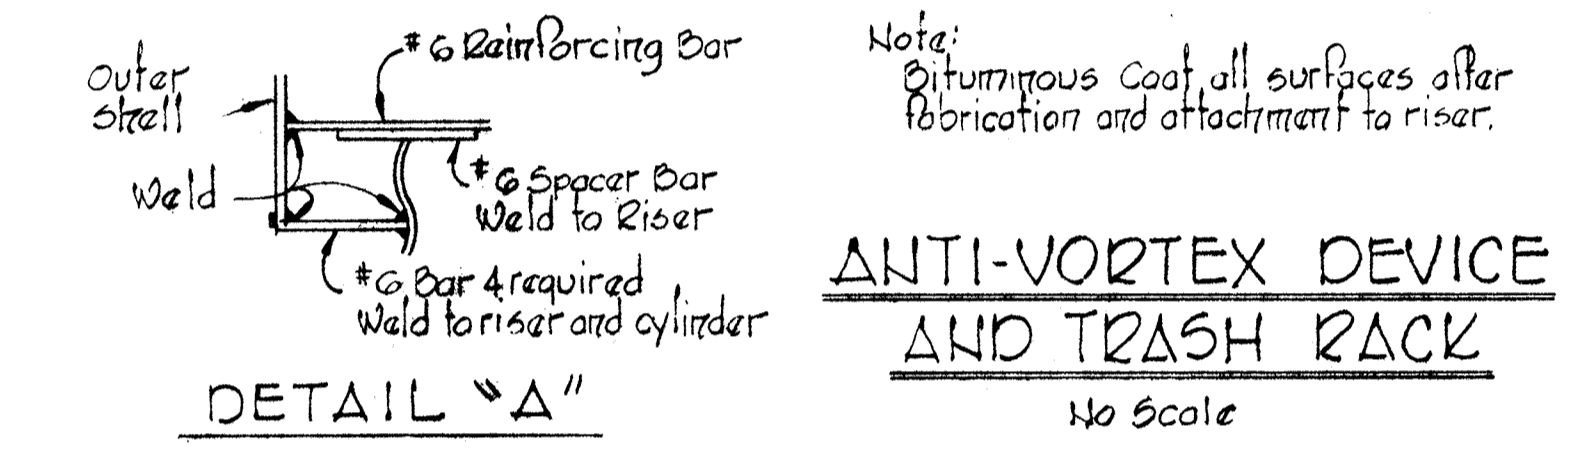 #6 Reinforcing Bar
Outer
shell
Weld
#6 Spacer Bar
Weld to Riser
#6 Bar 4 required
Weld to riser and cylinder
DETAIL "A"
Note:
Bituminous Coat all surfaces after
fabrication and attachment to riser.
ANTI-VORTEX DEVICE
AND TRASH RACK
No Scale